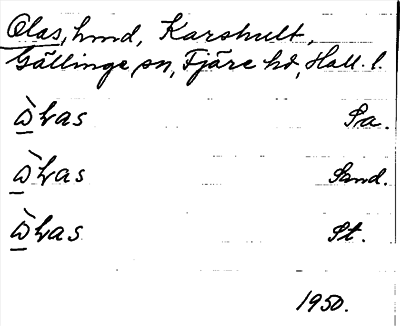 Olas, hmd, Karshult,
Gällinge sn, Fjäre hd, Hall. l.
ὼLas Sa.
ὼLas Sand.
ὼLas St.
1950.